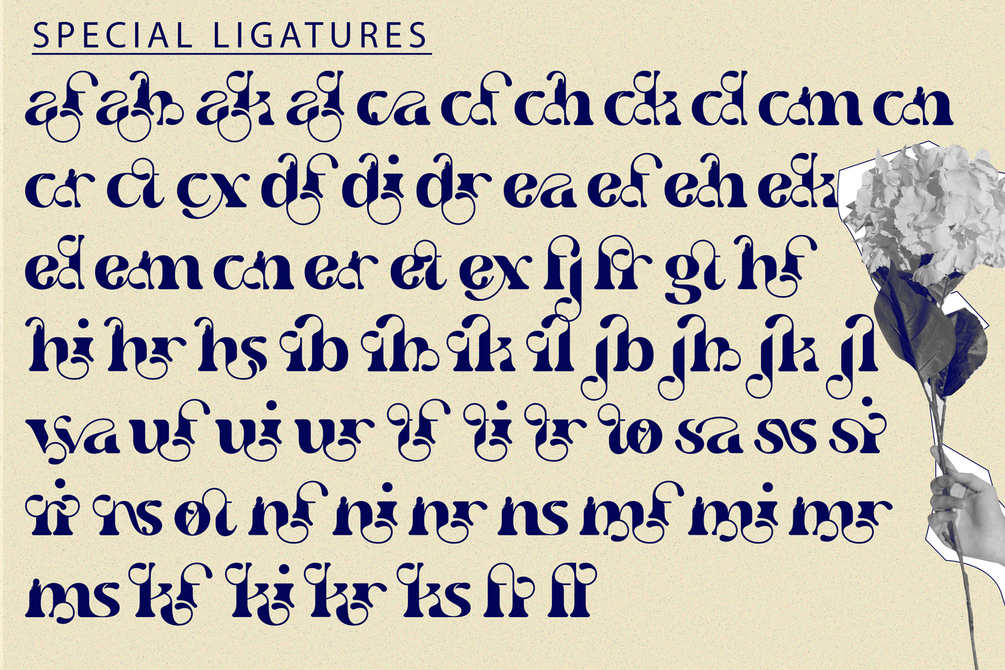 SPECIAL LIGATURES
af ah ak al ca cf ch ck cl cm cn
cr ct cx df di dr ea ef eh ek
el em cn er et ex fj fr gt hf
hi hr hs ib ih ik il jb jh jk jl
ya uf ui ur tf ti tr to sa ss sr
rr rs ot nf ni nr ns mf mi mr
ms kf ki kr ks